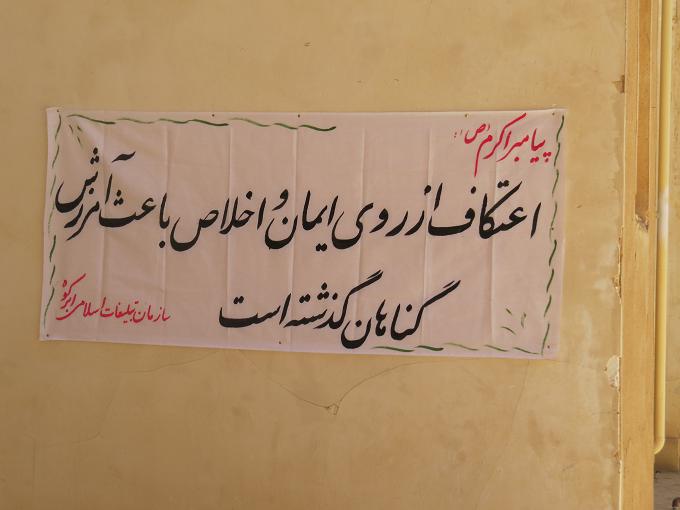 پیامبر اکرم (ص):
اعتکاف از روی ایمان و اخلاص باعث آمرزش
گناهان گذشته است
سازمان تبلیغات اسلامی ابرکوه